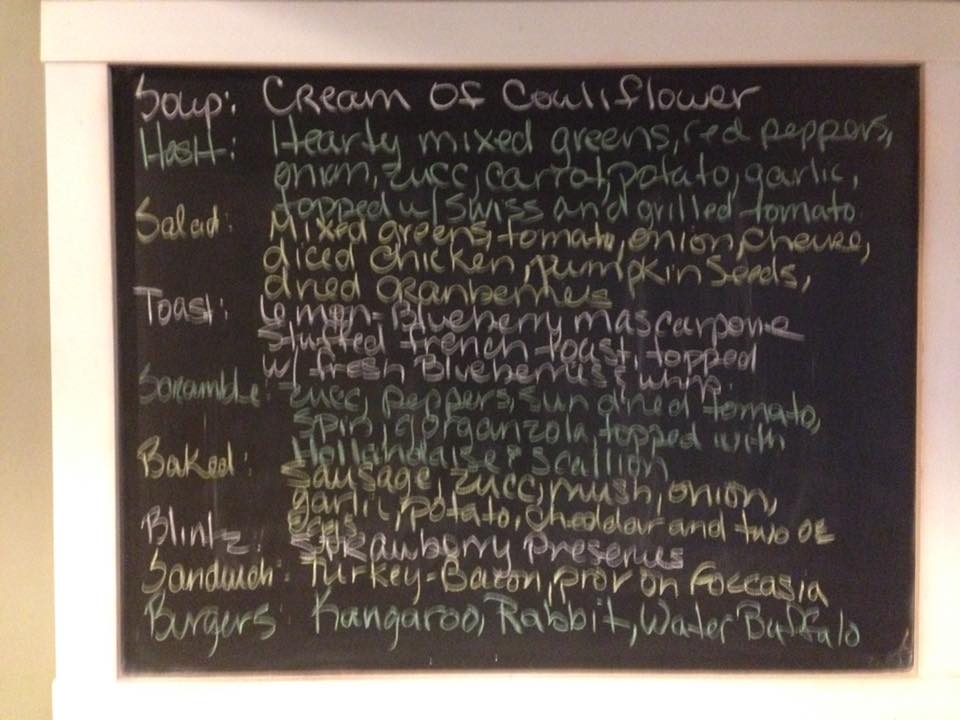 Soup: Cream of Couliflower
Hash: Hearty mixed greens, red peppers,
onion, zucc, carrot, potato, garlic,
topped w/ Swiss and grilled tomato
Salad: Mixed greens, tomato, onion, cheese,
diced chicken, pumpkin seeds,
dried cranberries
Toast: Lemon-Blueberry mascarpone
Stuffed french toast, topped
w/ fresh Blueberries & whip.
Scramble: zucc, peppers, sun dried tomato,
spin, gorganzola, topped with
Hollandaise & scallion
Baked: Sausage, zucc, mush, onion,
garlic, potato, cheddar and two oe
eggs
Blintz: Strawberry Preserves
Sandwich: Turkey-Bacon, prov on Foccasia
Burgers: Kangaroo, Rabbit, Water Buffalo